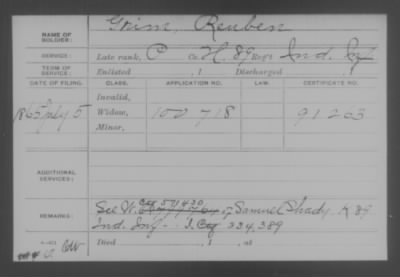 Grim, Reuben
NAME OF SOLDIER:
SERVICE: Late rank, P Co. H, 89 Reg't Ind. Inf
TERM OF SERVICE: Enlisted , 1 Discharged , 1
DATE OF FILING. CLASS. APPLICATION NO. LAW. CERTIFICATE NO.
Invalid,
1865 July 5 Widow, 100 718 91263
Minor,
ADDITIONAL SERVICES:
REMARKS: See W. Samuel Shady K 89
Ind. Inf I. Ctf 334,389
Died , 1 , at